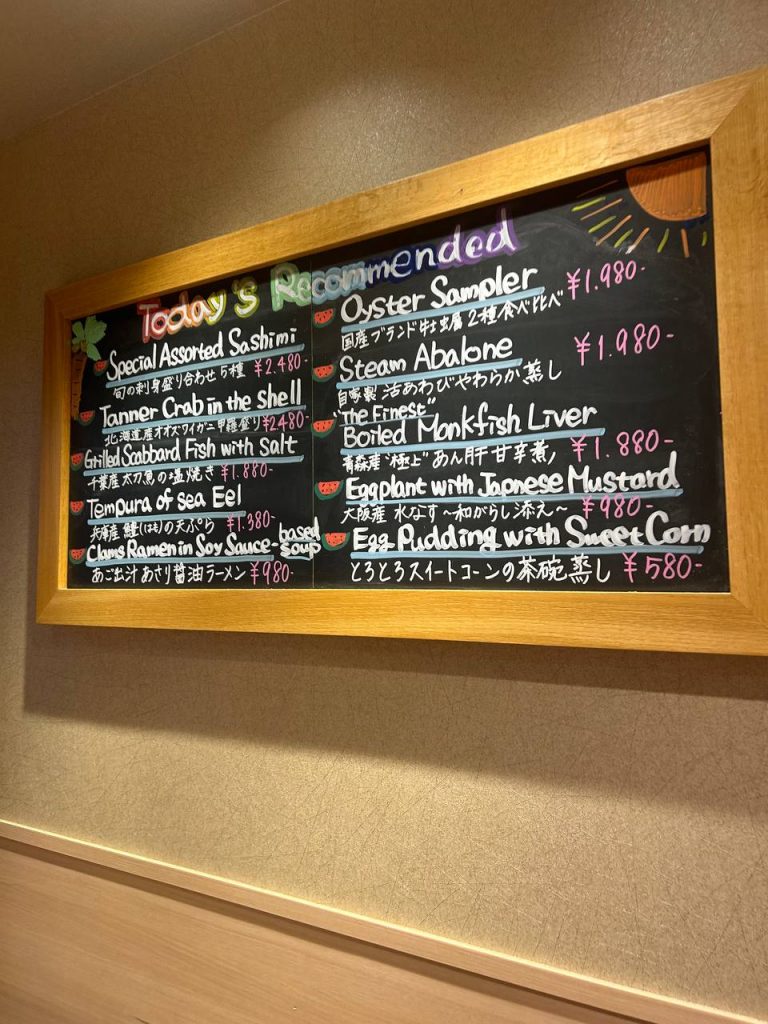 Today's Recommended
Special Assorted Sashimi
旬の刺身盛り合わせ5種 ¥2.480-
Tanner Crab in the shell
北海道産オオズワイガニ甲羅盛り ¥2480-
Grilled Scabbard Fish with Salt
千葉産 太刀魚の塩焼き ¥1.880-
Tempura of sea Eel
兵庫産 鱧(はも)の天ぷら ¥1.380-
Clams Ramen in Soy Sauce-based soup
あご出汁 あさり醤油ラーメン ¥980-
Oyster Sampler ¥1.980-
国産ブランド牡蛎2種食べ比べ
Steam Abalone ¥1.980-
自家製 活あわびやわらか蒸し
"The Finest"
Boiled Monkfish Liver
青森産"極上"あん肝甘辛煮 ¥1.880-
Eggplant with Japnese Mustard
大阪産 水なす〜和がらし添え〜 ¥980-
Egg Pudding with Sweet Corn
とろとろスイートコーンの茶碗蒸し ¥580-